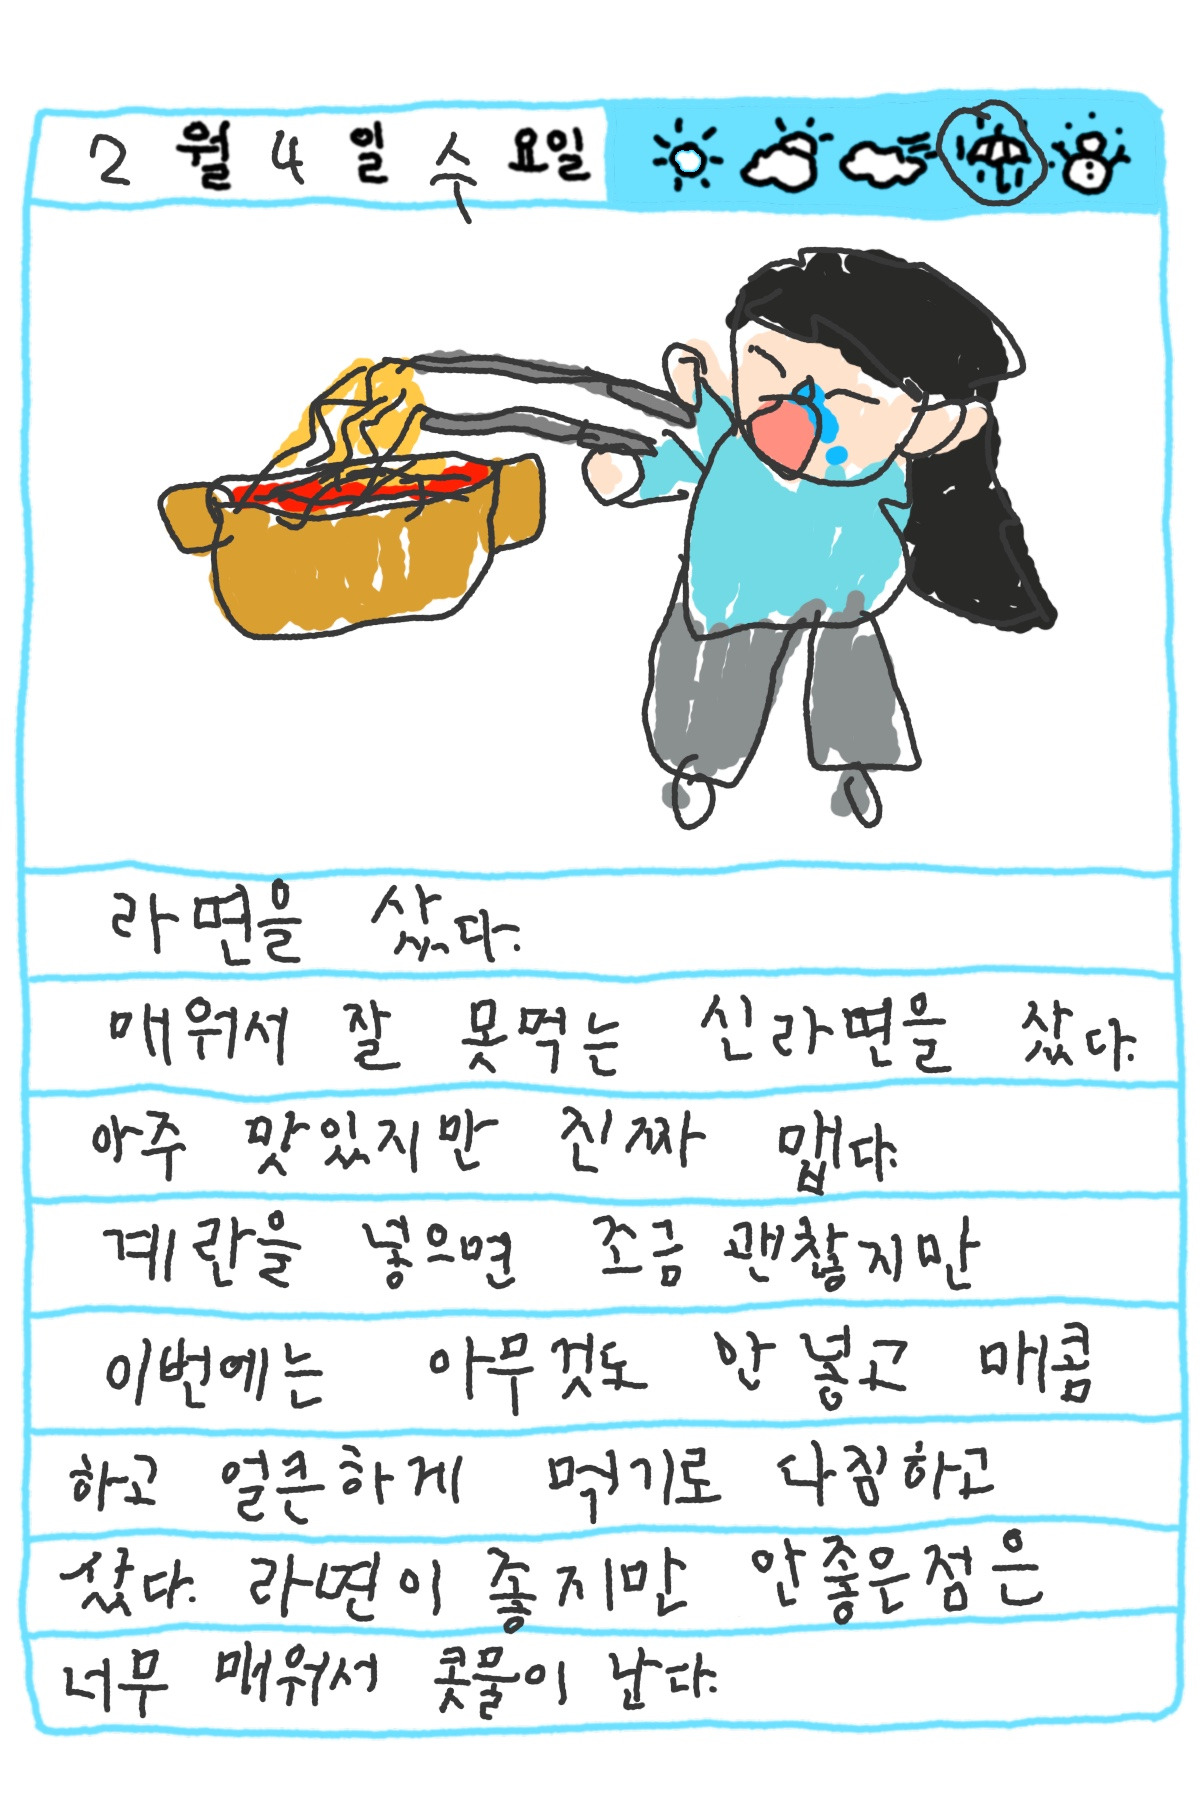 2월 4일 수요일
라면을 샀다.
매워서 잘 못먹는 신라면을 샀다.
아주 맛있지만 진짜 맵다.
계란을 넣으면 조금 괜찮지만
이번에는 아무것도 안 넣고 매콤
하고 얼큰하게 먹기로 다짐하고
샀다. 라면이 좋지만 안좋은점은
너무 매워서 콧물이 난다.